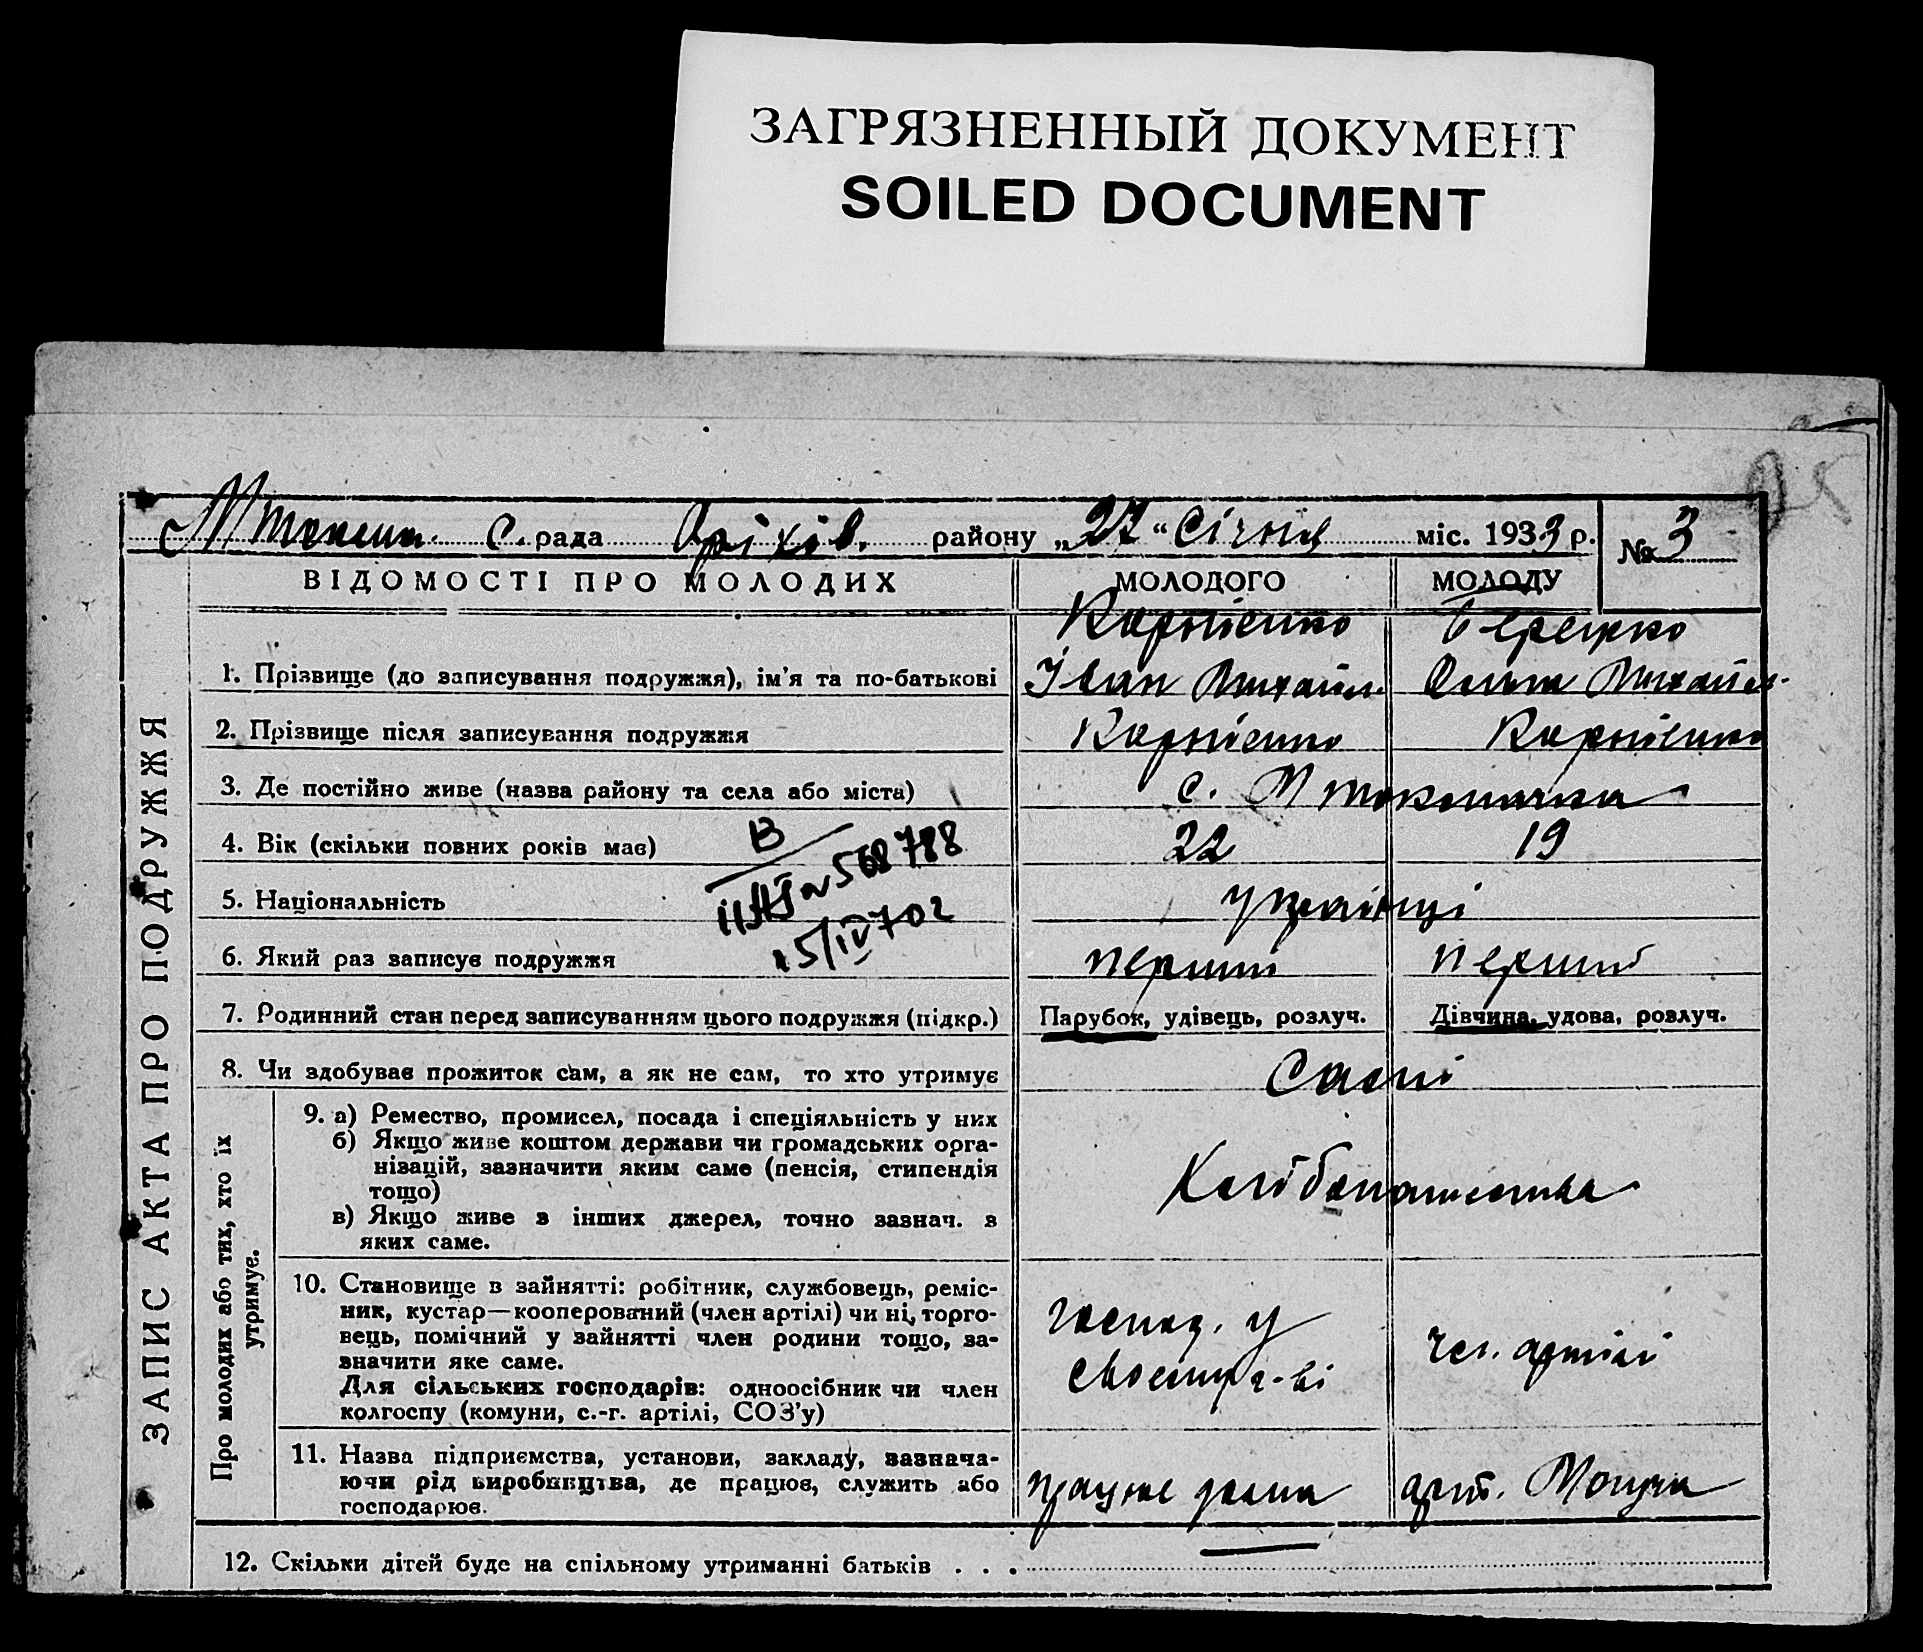 ЗАГРЯЗНЕННЫЙ ДОКУМЕНТ
SOILED DOCUMENT
25
с. рада Оріхів. району „27“ Січня міс. 1933 р. № 3
ВІДОМОСТІ ПРО МОЛОДИХ МОЛОДОГО МОЛОДУ
Корнієнко
1. Прізвище (до записування подружжя), ім'я та по-батькові Іван Михайл. Ольга Михайл.
2. Прізвище після записування подружжя Корнієнко Корнієнко
3. Де постійно живе (назва району та села або міста) с. М токмачка
4. Вік (скільки повних років має) 22 19
В
568788
15/IV 702
5. Національність українці
6. Який раз записує подружжя перший перший
7. Родинний стан перед записуванням цього подружжя (підкр.) Парубок, удівець, розлуч. Дівчина, удова, розлуч.
8. Чи здобуває прожиток сам, а як не сам, то хто утримує Самі
9. а) Ремество, промисел, посада і спеціяльність у них
б) Якщо живе коштом держави чи громадських орга-
нізацій, зазначити яким саме (пенсія, стипендія
тощо)
в) Якщо живе з інших джерел, точно зазнач. з
яких саме.
Хлібопашества
10. Становище в зайнятті: робітник, службовець, реміс-
ник, кустар—кооперований (член артілі) чи ні, торго-
вець, помічний у зайнятті член родини тощо, за-
значити яке саме.
Для сільських господарів: одноосібник чи член
колгоспу (комуни, с.-г. артілі, СОЗ'у)
господ. у
своему г-ві
чл. артілі
11. Назва підприємства, установи, закладу, зазнача-
ючи рід виробництва, де працює, служить або
господарює.
працює дома
арт.
12. Скільки дітей буде на спільному утриманні батьків . . .
ЗАПИС АКТА ПРО ПОДРУЖЖЯ
Про молодих або тих, хто їх
утримує.